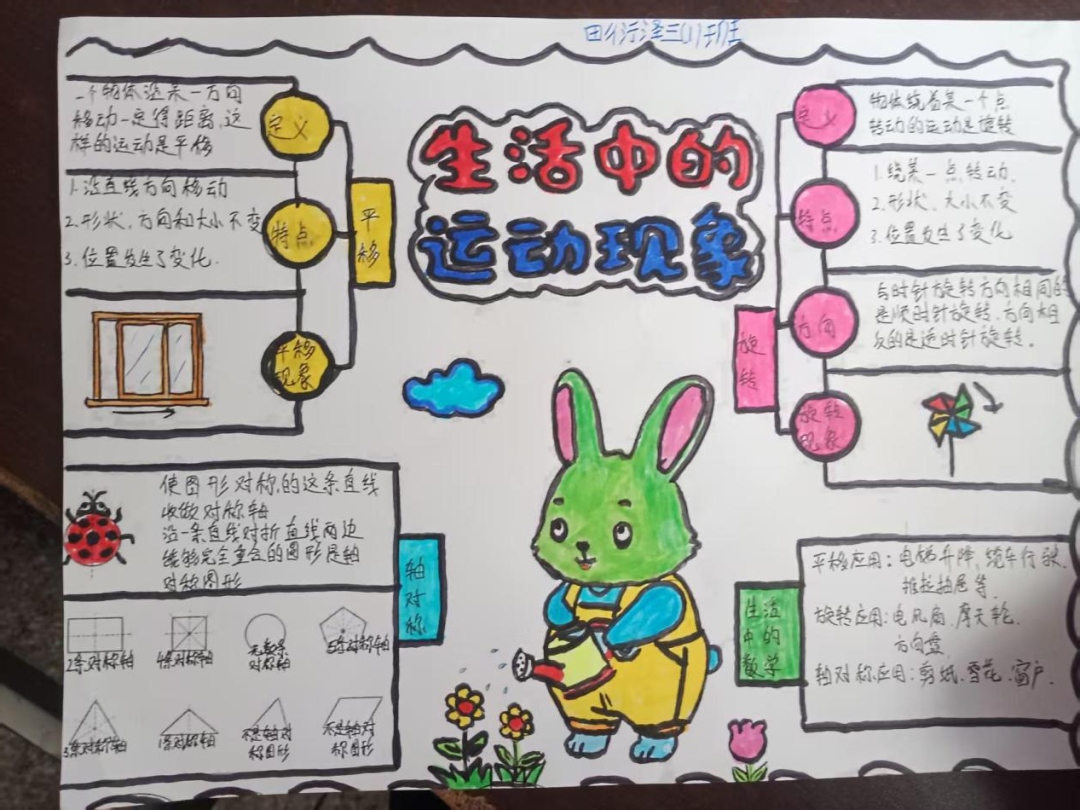 田衍泽三(1)班
生活中的
运动现象
一个物体沿某一方向
移动一定得距离,这
样的运动是平移
定义
1.沿直线方向移动
2.形状,方向和大小不变
3.位置发生了变化.
特点
平移
平移
现象
物体绕着某一个点
转动的运动是旋转
定义
1.绕某一点转动.
2.形状、大小不变
3.位置发生了变化
特点
与时针旋转方向相同的
是顺时针旋转,方向相
反的是逆时针旋转.
方向
旋转
旋转
现象
使图形对称的这条直线
收做对称轴
沿一条直线对折直线两边
能够完全重合的图形是轴
对称图形
轴对称
2条对称轴
4条对称轴
无数条
对称轴
5条对称轴
3条对称轴
1条对称轴
不是轴对
称图形
不是轴对
称图形
生活
中的
数学
平移应用:电梯升降,缆车行驶.
推拉抽屉等.
旋转应用:电风扇.摩天轮.
方向盘.
轴对称应用:剪纸.雪花.窗户.